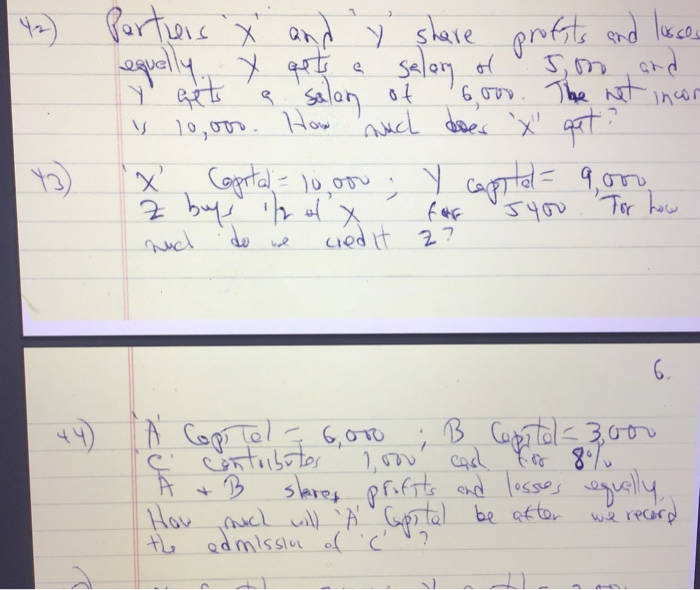 42) Partners 'X' and 'Y' share profits and losses
equally. X gets a salary of 5,000 and
Y gets a salary of 6,000. The net incom
is 10,000. How much does "X" get?
43) 'X' Capital = 10,000 ; Y capital = 9,000
Z buys 1/2 of X for 5400. For how
much do we credit Z?
6.
44) 'A' Capital = 6,000 ; B Capital = 3,000
'C' contributes 1,000 cash for 8%
A + B shares profits and losses equally.
How much will 'A' Capital be after we record
the admission of 'C'?